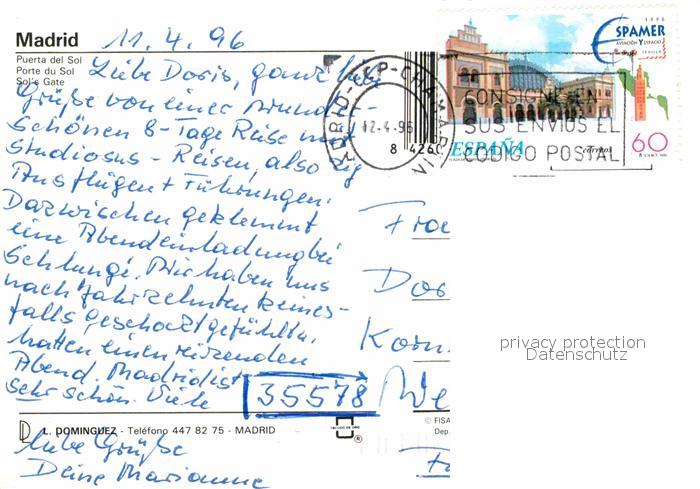 Madrid
11.4.96
Puerta del Sol
Porte du Sol
Sol's Gate
Liebe Doris, ganz liebe
Grüße von einer wunder-
schönen 8-Tage Reise mit
Studiosus-Reisen, also
Ausflügen + Führungen.
Dazwischen geklemmt
eine Abendeinladung bei
Schlungi. Wir haben uns
nach Jahrzehnten keines-
falls geschockt gefühlt u.
hatten einen reizenden
Abend. Madrid ist
sehr schön. Viele
35578
L. DOMINGUEZ - Teléfono 447 82 75 - MADRID
liebe Grüße
Deine Marianne
12-4-96
8 4260
1996
ESPAMER
AVIACIÓN Y ESPACIO
SEVILLA
CONSIGNE EN
SUS ENVIOS EL
CODIGO POSTAL
ESPAÑA
correos
60
Frau
Dor
Korn
We
privacy protection
Datenschutz
© FISA
Dep.